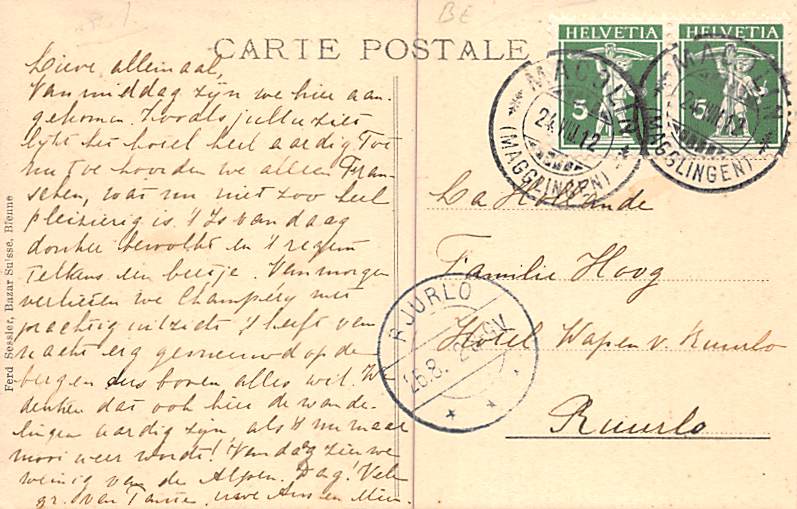 BE
CARTE POSTALE
HELVETIA HELVETIA
5 5
MACOLIN
24.VIII.12
(MAGGLINGEN)
MACOLIN
24.VIII.12
(MAGGLINGEN)
Lieve allemaal,
Van middag zijn we hier aan-
gekomen. Zooals jullie ziet
lijkt het hotel heel aardig. Tot
nu toe hoorden we alleen Fran-
schen, wat nu niet zoo heel
pleizierig is. 't Is van daag
donker bewolkt en 't regent
telkens een beetje. Van morgen
verlieten we Champéry met
prachtig uitzicht. 't heeft van
nacht erg gesneeuwd op de
bergen dus boven alles wit. W
denken dat ook hier de wande-
lingen aardig zijn als 't nu maar
mooi weer wordt! Van daag zien we
weinig van de Alpen. Dag! Vele
gr. van Tante, uwe en Mien.
La Hollande
Familie Hoog
Hotel Wapen v. Ruurlo
Ruurlo
RUURLO
Ferd Sessler, Bazar Suisse, Bienne